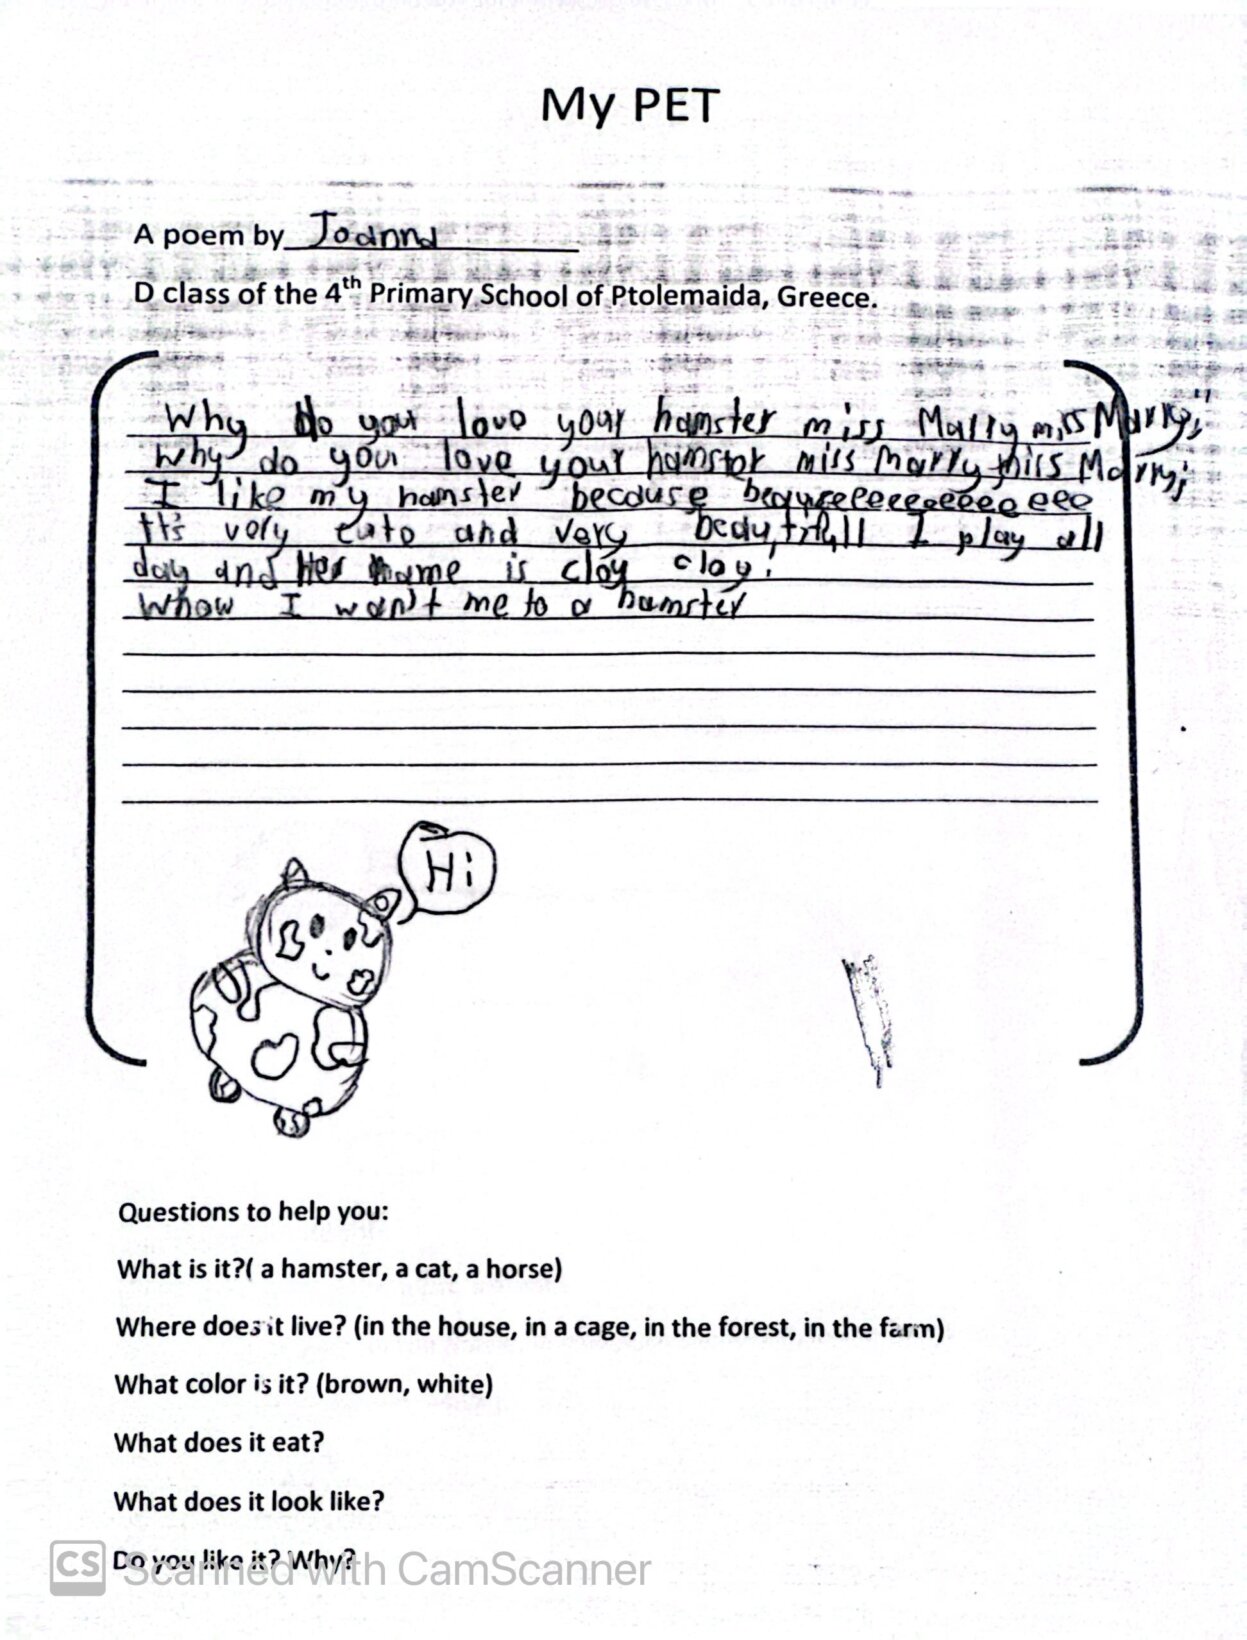 My PET
A poem by Joanna
D class of the 4th Primary School of Ptolemaida, Greece.
Why do your love your hamster miss Marry miss Marry;
Why do you love your hamster miss Marry miss Marry;
I like my hamster because becauseeeeeeeeeeee eee
It's very cute and very beautifull I play all
day and Her name is cloy cloy!
Whow I want't me to a hamster
Hi
Questions to help you:
What is it?( a hamster, a cat, a horse)
Where does it live? (in the house, in a cage, in the forest, in the farm)
What color is it? (brown, white)
What does it eat?
What does it look like?
Do you like it? Why?
CS Scanned with CamScanner